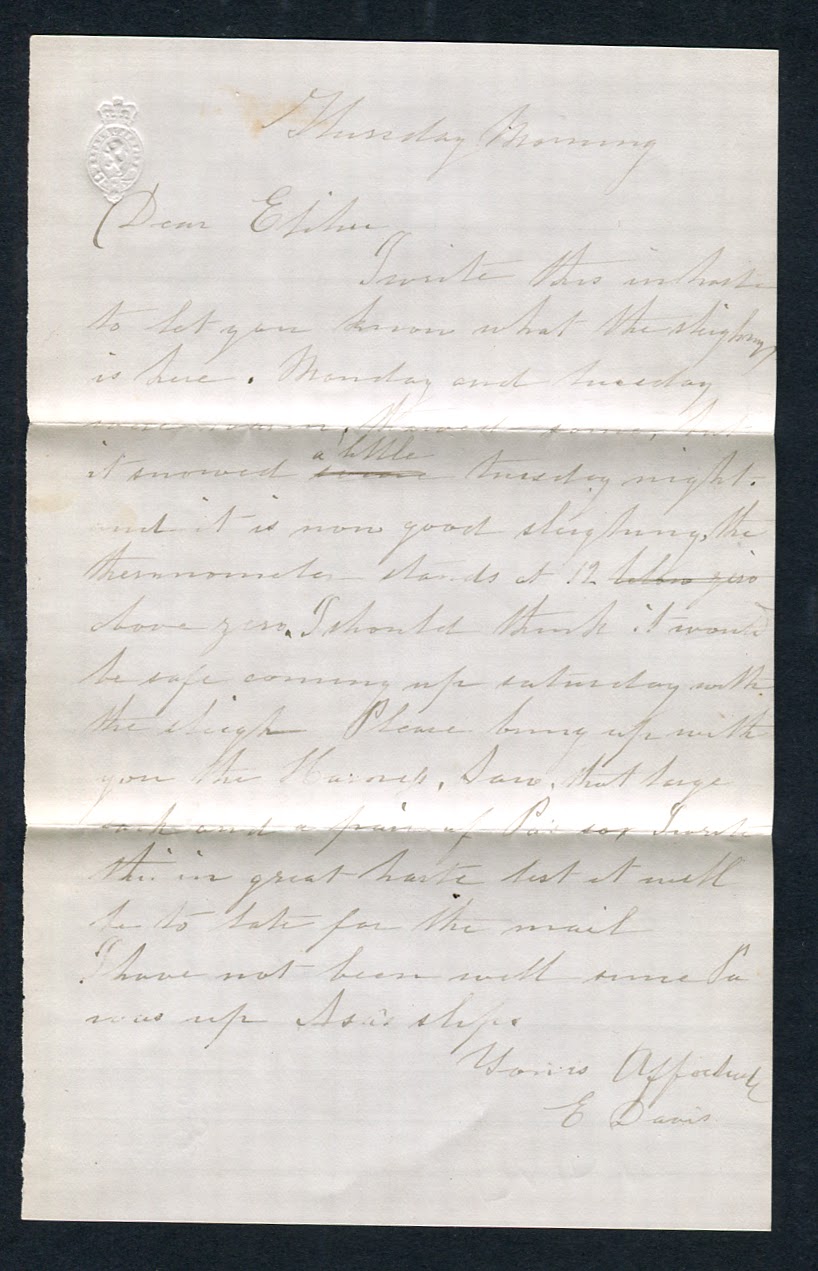 Thursday Morning
Dear
I write this in haste
to let you know what the sleighing
is here. Monday and tuesday
warm, thawed some, but
it snowed some a little tuesday night.
and it is now good sleighing, the
thermometer stands at 12 below zero
above zero. I should think it would
be safe coming up saturday with
the sleigh Please bring up with
you the Harness, Saw, that large
and a pair of I write
this in great haste lest it will
be to late for the mail
I have not been well since Pa
was up
Yours
E Davis